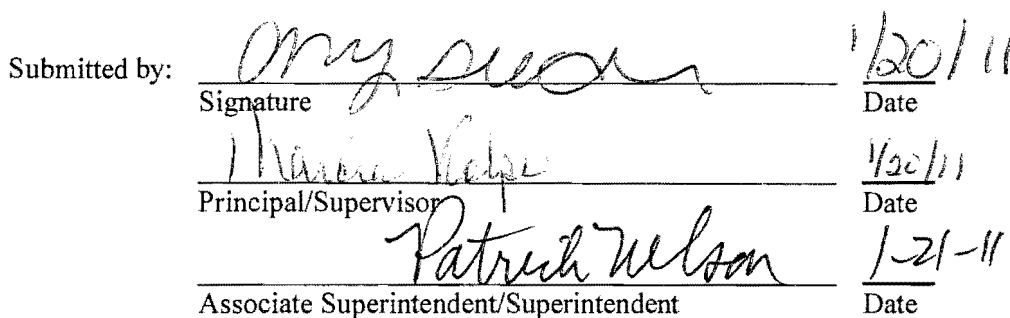 Submitted by: 1/20/11
Signature Date
1/20/11
Principal/Supervisor Date
Patrick Nelson 1-21-11
Associate Superintendent/Superintendent Date